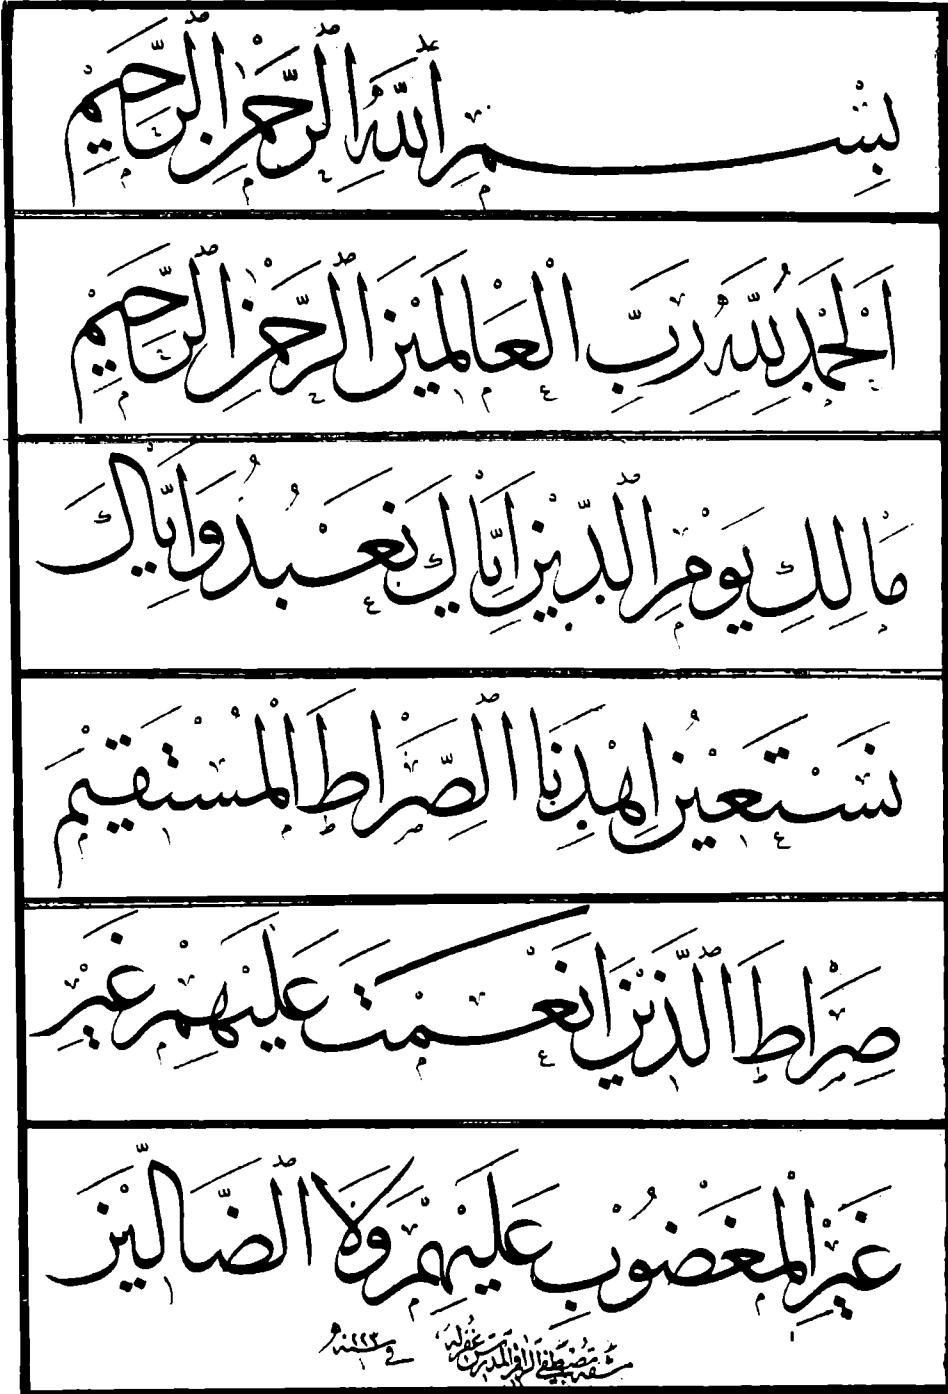 بِسْمِ اللهِ الرَّحْمٰنِ الرَّحِيْمِ
اَلْحَمْدُ لِلّٰهِ رَبِّ الْعَالَمِيْنَ الرَّحْمٰنِ الرَّحِيْمِ
مَالِكِ يَوْمِ الدِّيْنِ اِيَّاكَ نَعْبُدُ وَاِيَّاكَ
نَسْتَعِيْنُ اِهْدِنَا الصِّرَاطَ الْمُسْتَقِيْمَ
صِرَاطَ الَّذِيْنَ اَنْعَمْتَ عَلَيْهِمْ غَيْرِ
غَيْرِ الْمَغْضُوْبِ عَلَيْهِمْ وَلَا الضَّالِّيْنَ
مشقه مصطفى الراقم المدرس غفر له
في سنه ١٢٢٣